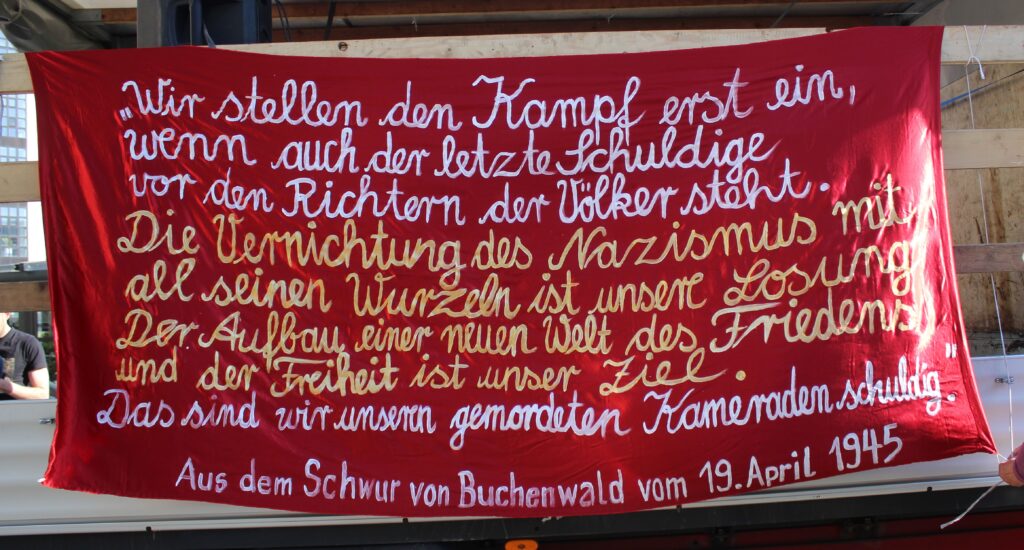 „Wir stellen den Kampf erst ein,
wenn auch der letzte Schuldige
vor den Richtern der Völker steht.
Die Vernichtung des Nazismus mit
all seinen Wurzeln ist unsere Losung
Der Aufbau einer neuen Welt des Friedens
und der Freiheit ist unser Ziel.
Das sind wir unsern gemordeten Kameraden schuldig."
Aus dem Schwur von Buchenwald vom 19. April 1945